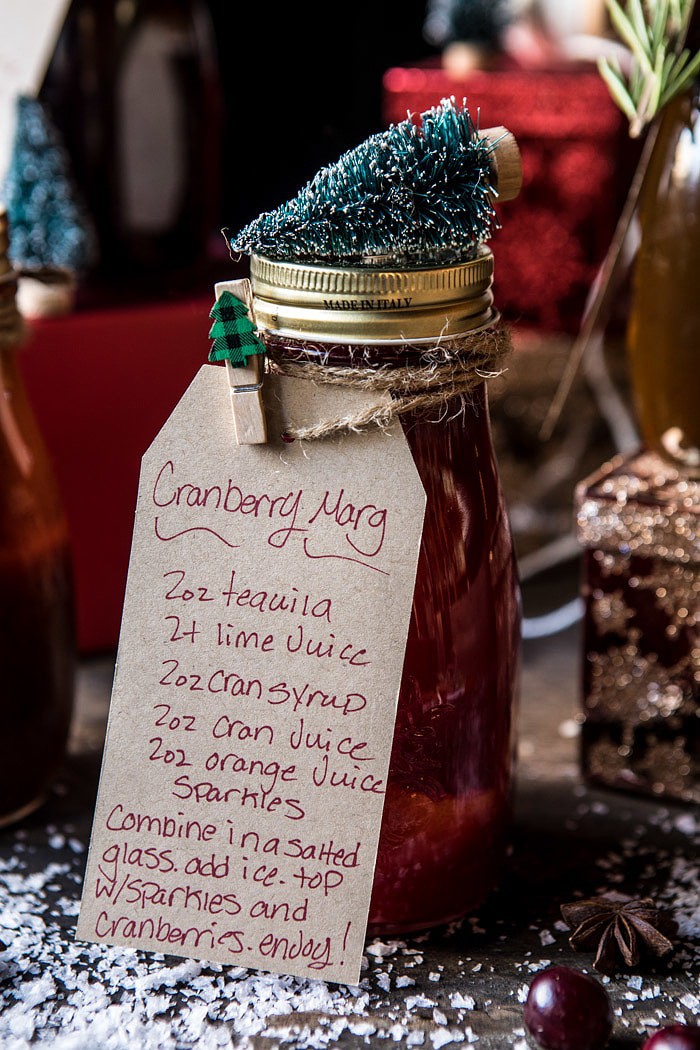 MADE IN ITALY
Cranberry Marg
2oz tequila
2t lime Juice
2oz cran syrup
2oz cran Juice
2oz orange Juice
Sparkles
Combine in a salted
glass. add ice. top
w/sparkles and
Cranberries. enjoy!